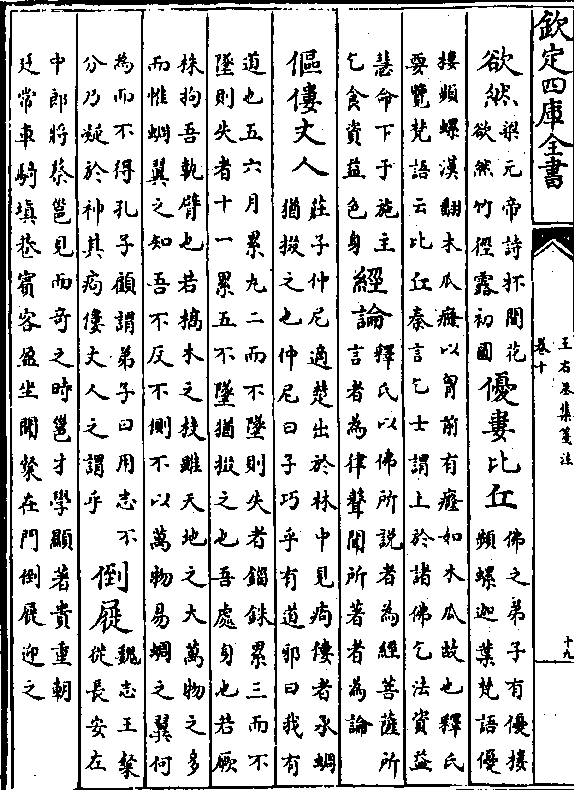 欽定四庫全書
王右丞集箋注
卷十
十九
欲然
梁元帝詩杯間花
欲然竹徑露初圓
優婁比丘
佛之弟子有優樓
頻螺迦葉梵語優
樓頻螺漢翻木瓜癊以胷前有癊如木瓜故也釋氏
要覽梵語云比丘秦言乞士謂上於諸佛乞法資益
慧命下于施主
乞食資益色身
經論
釋氏以佛所説者為經菩薩所
言者為律聲聞所著者為論
傴僂丈人
莊子仲尼適楚出於林中見痀僂者承蜩
猶掇之也仲尼曰子巧乎有道邪曰我有
道也五六月累九二而不墜則失者錙銖累三而不
墜則失者十一累五不墜猶掇之也吾處身也若厥
株拘吾執臂也若槁木之枝雖天地之大萬物之多
而惟蜩翼之知吾不反不側不以萬物易蜩之翼何
為而不得孔子顧謂弟子曰用志不
分乃疑於神其痀僂丈人之謂乎
倒屣
魏志王粲
從長安在
中郎將蔡邕見而奇之時邕才學顯著貴重朝
廷常車騎填巷賓客盈坐聞粲在門倒屣迎之